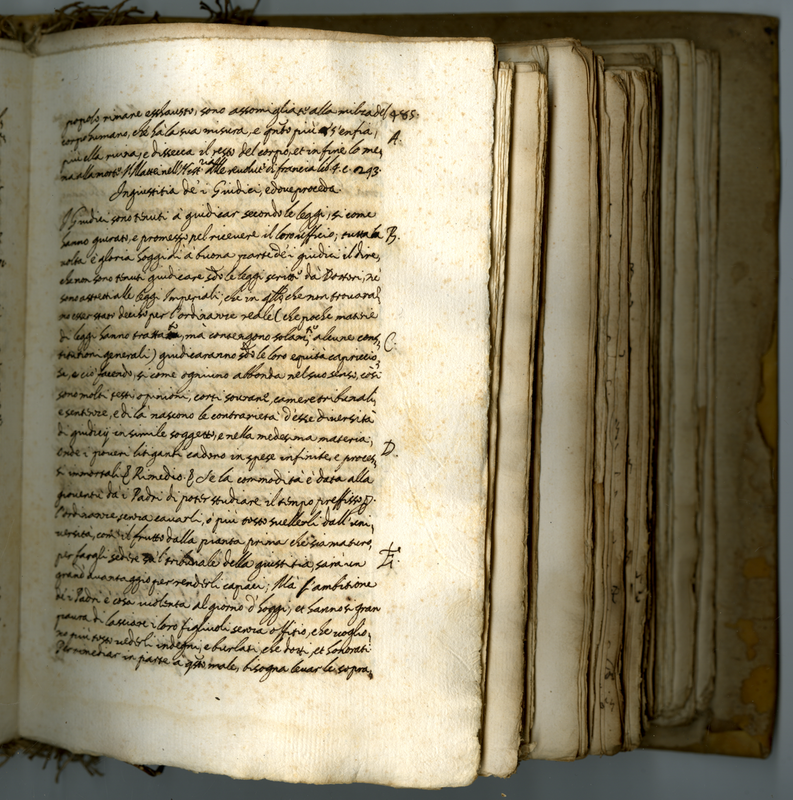 popolo rimane exhausto; sono assomigliate alla milza del 485.
corpo humano, che hà la sua misura, e q̃to più s'enfia, A.
più ella ruina, e dissecca il resto del corpo, et in fine lo me,
na alla morte. P. Matt. nell'Hist. alle revolut. di francia lib. 4. c. 293.
Ingiustitia de' i Giudici, e dove proceda.
I Giudici sono tenuti à giudicar secondo le leggi; si come
hanno giurato, e promesso pel ricevere il loro ufficio; tutta la B.
volta è gloria hoggi dì à buona parte de i giudici il dire,
che non sono tenuti giudicare sẽdo le leggi scritte da Dottori, nè
sono astretti alle leggi Imperiali; che in q̃llo, che non trovaral
no esser stato deciso per l'ordinanze reale (che poche materie
di leggi hanno trattato, mà contengono solam.te alcune cons, C.
titutioni generali) giudicaranno sẽdo le loro equità capriccio,
sa, e ciò facendo, si come ogniuno abbonda nel suo senso, così
sono molti testi opinioni, corti sovrane, camere tribunali,
e sentenze, e di là nascono le contrarietà d'esse diversità
di giudicij in simile soggetto, e nella medesima materia;
onde i poveri litiganti cadono in spese infinite, e proces, D.
si immortali. Rimedio. Se la commodità è data alla
gioventù da i Padri di poter studiare il tempo prefisso p.
l'ordinanze, senza cavarli, ò più tosto svellerli dall'uni,
versità, com'il frutto dalla pianta prima che sia maturo,
per fargli sedere su'l tribunale della giustitia, sarà un E.
grand'avantaggio per renderli capaci; Mà l'ambitione
de i Padri è cosa violenta al giorno d'hoggi; et hanno sì gran
paura di lasciare i loro figliuoli senza offitio, che voglio,
no più tosto vederli indegni, e burlati, che dotti, et honorati
Per rimediar in parte à q̃sto male, bisogna levar le sopra,